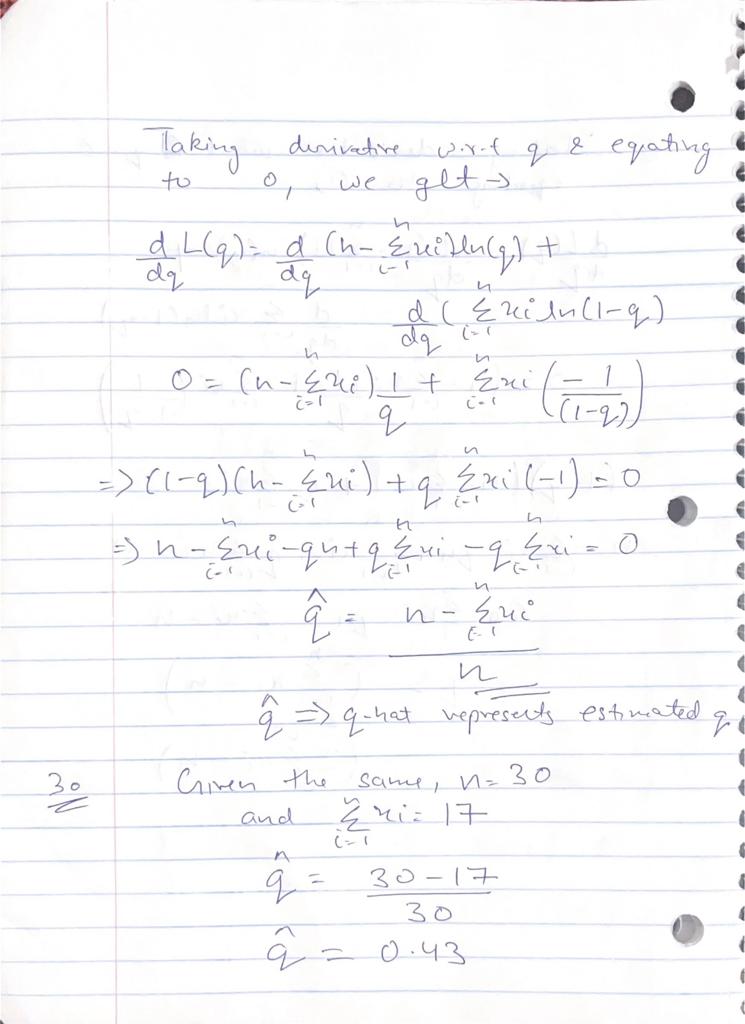 Taking derivative w.r.t q & equating
to 0, we get →
d/dq L(q) = d/dq (n - Σ_{i=1}^{n} xi) ln(q) +
d/dq ( Σ_{i=1}^{n} xi ln(1-q)
0 = (n - Σ_{i=1}^{n} xi) 1/q + Σ_{i=1}^{n} xi ( -1/(1-q) )
=> (1-q)(n - Σ_{i=1}^{n} xi) + q Σ_{i=1}^{n} xi (-1) = 0
=> n - Σ_{i=1}^{n} xi - qn + q Σ_{i=1}^{n} xi - q Σ_{i=1}^{n} xi = 0
q̂ = (n - Σ_{i=1}^{n} xi) / n
q̂ => q-hat represents estimated q
30 Given the same, n = 30
and Σ_{i=1}^{n} xi = 17
q̂ = (30 - 17) / 30
q̂ = 0.43